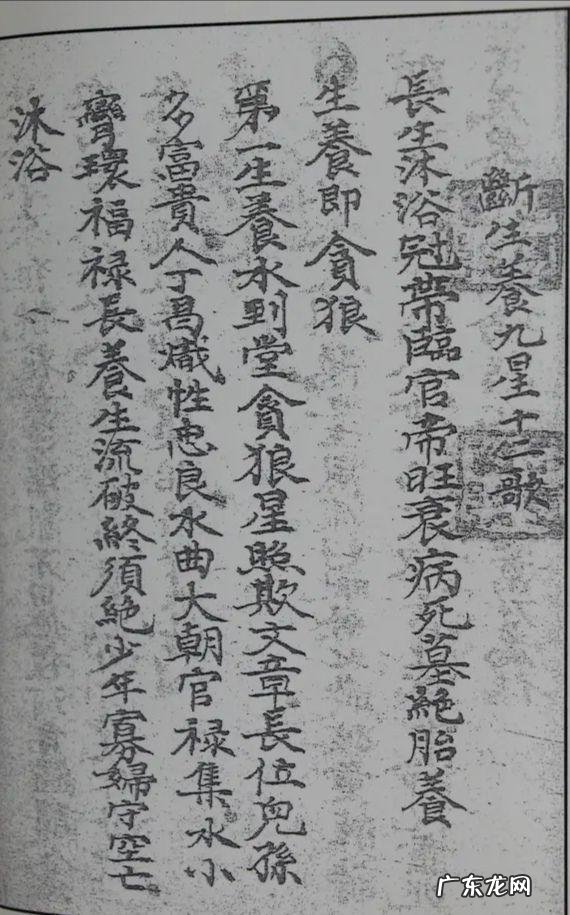 斷生養九星十二歌
長生沐浴冠帶臨官帝旺衰病死墓絕胎養
生養即貪狼
第一生養水到堂貪狼星照欺文章長位兒孫
多富貴人丁昌熾性忠良水曲大朝官禄集水小
灣環福禄長養生流破終須絕少年寡婦守空亡
沐浴
广东龙网